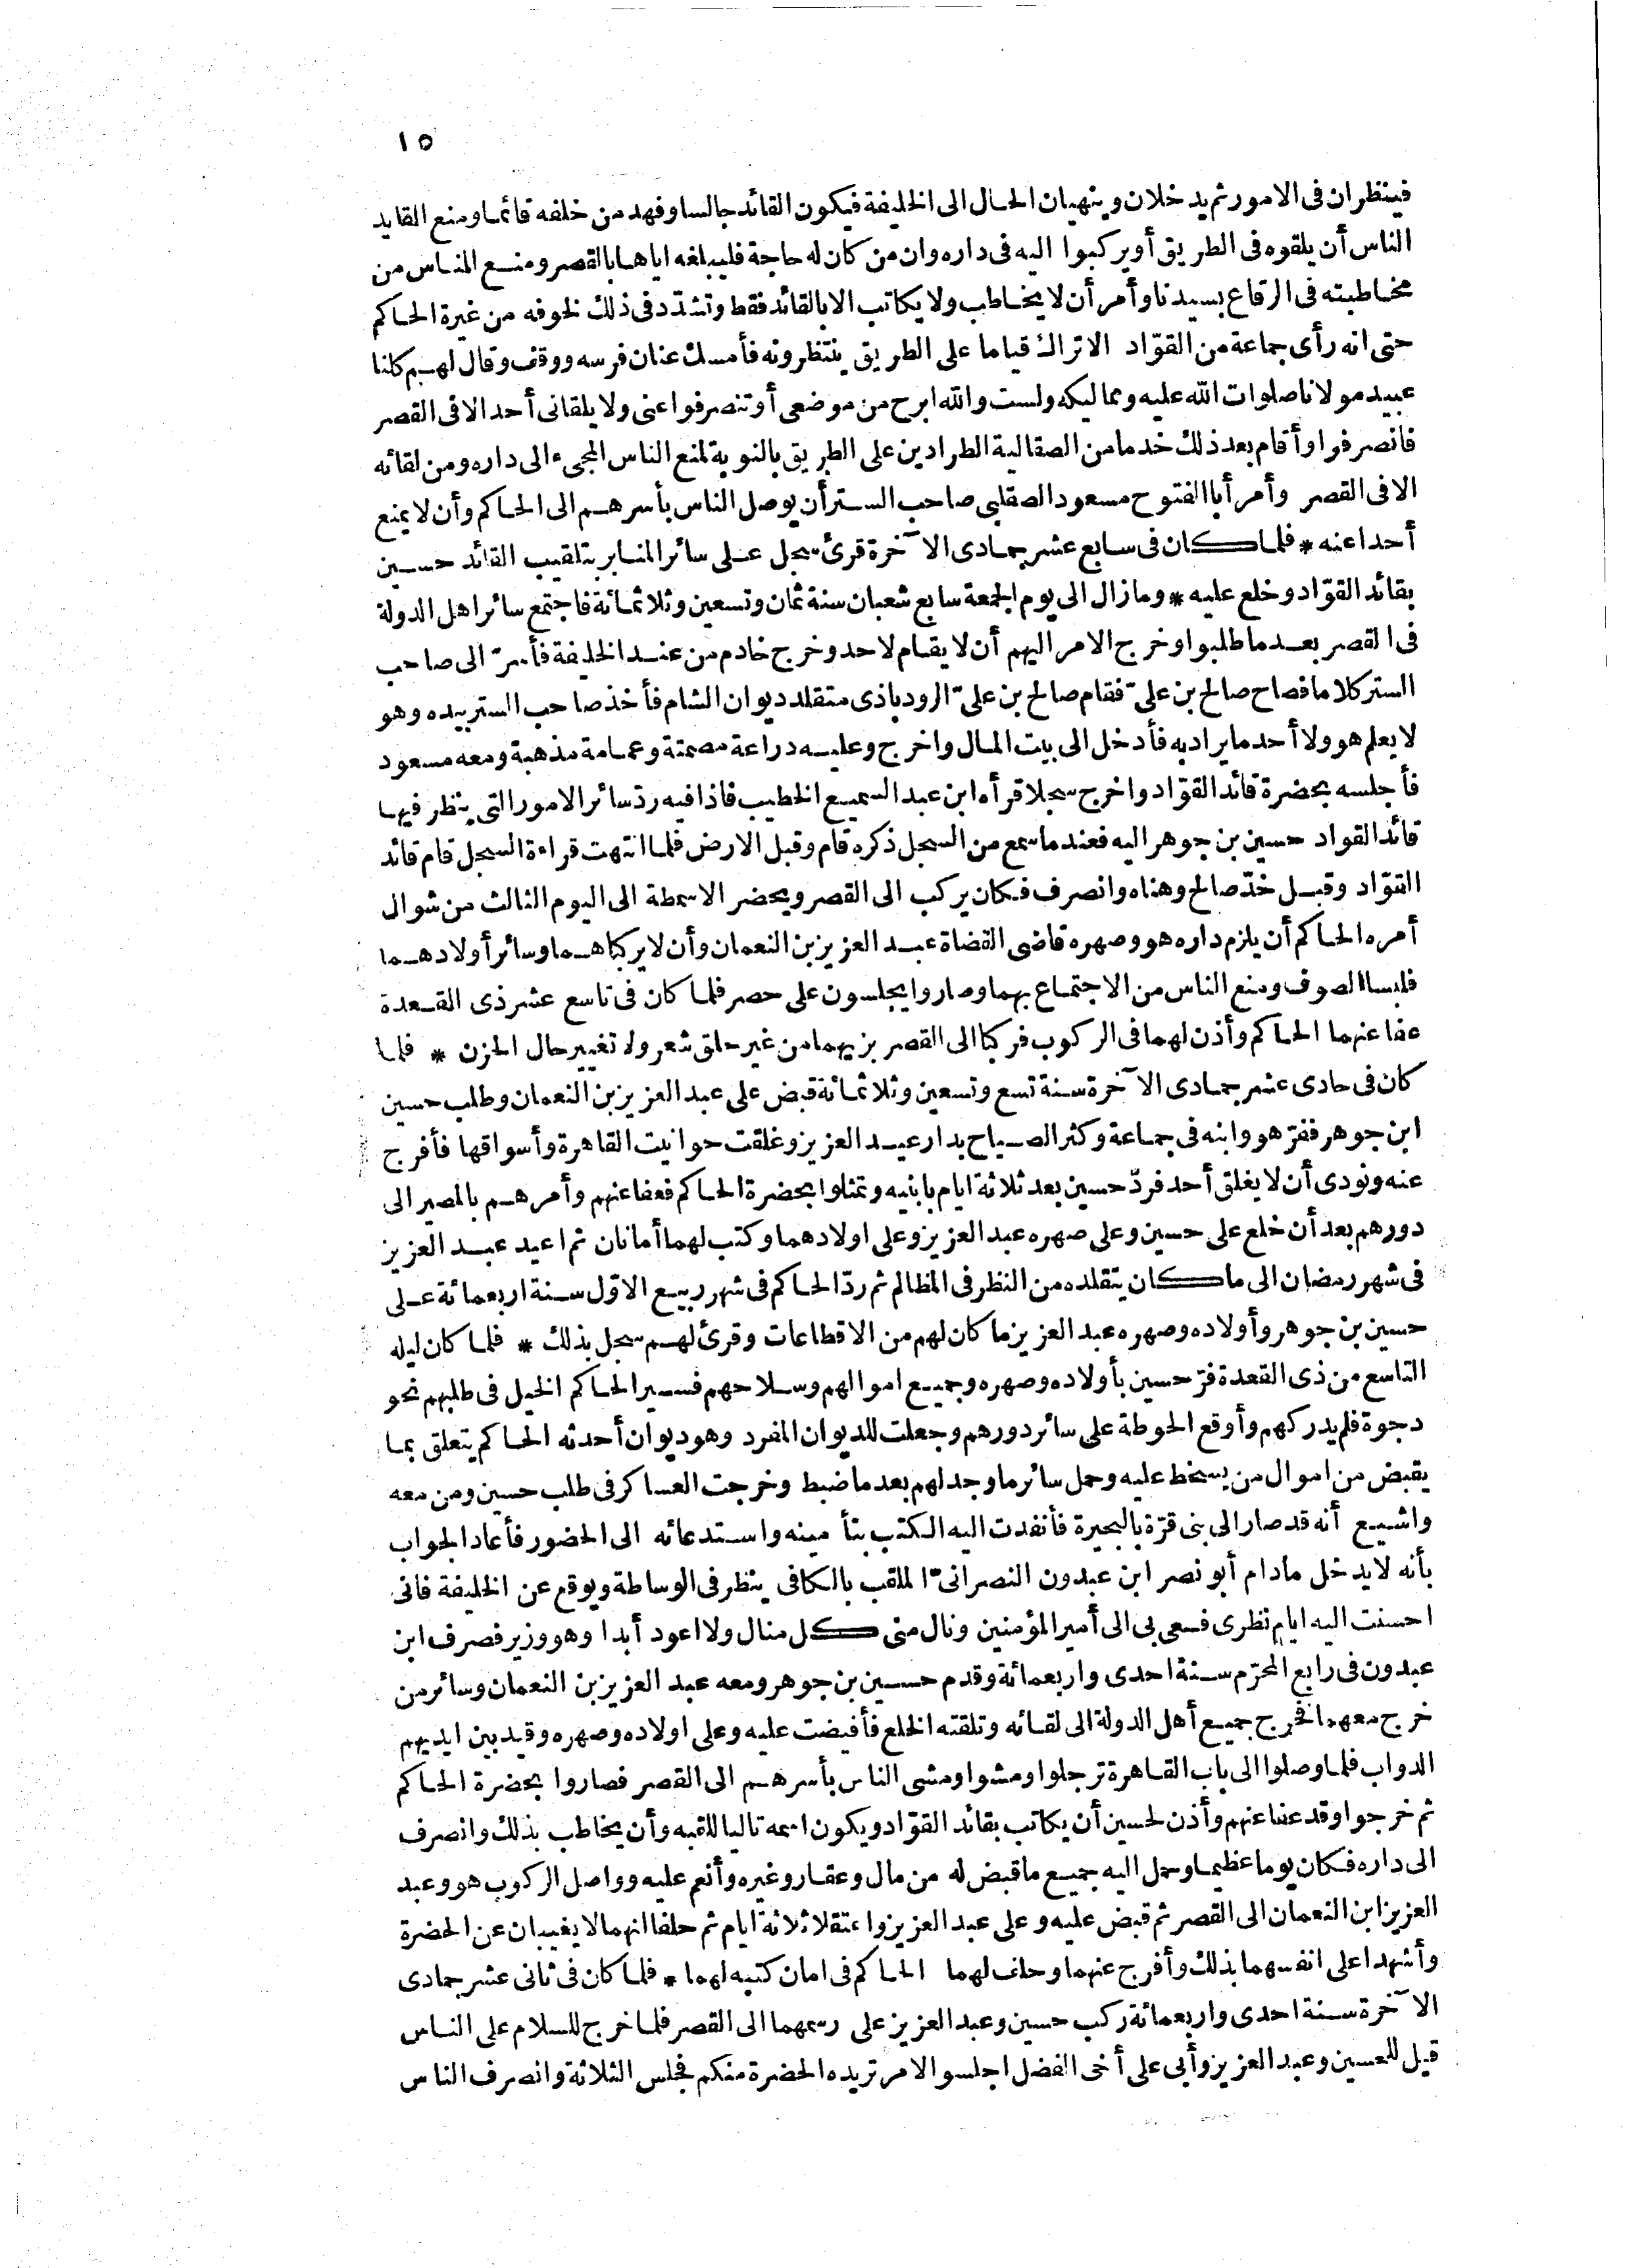 ١٥
فينظران فى الامور ثم يدخلان وينهيان الحال الى الخليفة فيكون القائد جالسا وفهد من خلفه قائما ومنع القايد
الناس أن يلقوه فى الطريق أو يركبوا اليه فى داره وان من كان له حاجة فليبلغه اياها بالقصر ومنع الناس من
مخاطبته فى الرقاع بسيدنا وأمر أن لا يخاطب ولا يكاتب الا بالقائد فقط وتشدّد فى ذلك لخوفه من غيرة الحاكم
حتى انه رأى جماعة من القوّاد الاتراك قياما على الطريق ينتظرونه فأمسك عنان فرسه ووقف وقال لهم كلنا
عبيد مولانا صلوات الله عليه ومماليكه ولست والله ابرح من موضعى أو تنصرفوا عنى ولا يلقانى أحد الا فى القصر
فانصرفوا وأقام بعد ذلك خدما من الصقالبة الطرادين على الطريق بالنوبة لمنع الناس المجىء الى داره ومن لقائه
الا فى القصر وأمر أبا الفتوح مسعود الصقلبى صاحب الستر أن يوصل الناس بأسرهم الى الحاكم وأن لا يمنع
أحدا عنه * فلما كان فى سابع عشر جمادى الآخرة قرئ سجل على سائر المنابر بتلقيب القائد حسين
بقائد القوّاد وخلع عليه * وما زال الى يوم الجمعة سابع شعبان سنة ثمان وتسعين وثلاثمائة فاجتمع سائر اهل الدولة
فى القصر بعد ما طلبوا وخرج الامر اليهم أن لا يقام لاحد وخرج خادم من عند الخليفة فأسرّ الى صاحب
الستر كلاما فصاح صالح بن علىّ فقام صالح بن علىّ الروذباذى متقلد ديوان الشام فأخذ صاحب الستر بيده وهو
لا يعلم هو ولا أحد ما يراد به فأدخل الى بيت المال واخرج وعليه دراعة مصمتة وعمامة مذهبة ومعه مسعود
فأجلسه بحضرة قائد القوّاد واخرج سجلا قرأه ابن عبد السميع الخطيب فاذا فيه ردّ سائر الامور التى ينظر فيها
قائد القواد حسين بن جوهر اليه فعند ما سمع من السجل ذكره قام وقبل الارض فلما انتهت قراءة السجل قام قائد
القوّاد وقبل خدّ صالح وهناه وانصرف فكان يركب الى القصر ويحضر الاسمطة الى اليوم الثالث من شوال
أمره الحاكم أن يلزم داره هو وصهره قاضى القضاة عبد العزيز بن النعمان وأن لا يركبا هما وسائر أولادهما
فلبسا الصوف ومنع الناس من الاجتماع بهما وصاروا يجلسون على حصر فلما كان فى تاسع عشر ذى القعدة
عفا عنهما الحاكم وأذن لهما فى الركوب فركبا الى القصر بزيهما من غير حلق شعر ولا تغيير حال الحزن * فلما
كان فى حادى عشر جمادى الآخرة سنة تسع وتسعين وثلاثمائة قبض على عبد العزيز بن النعمان وطلب حسين
ابن جوهر ففرّ هو وابنه فى جماعة وكثر الصياح بدار عبد العزيز وغلقت حوانيت القاهرة وأسواقها فأفرج
عنه ونودى أن لا يغلق أحد فردّ حسين بعد ثلاثة ايام بابنيه وتمثلوا بحضرة الحاكم فعفا عنهم وأمرهم بالمصير الى
دورهم بعد أن خلع على حسين وعلى صهره عبد العزيز وعلى اولادهما وكتب لهما أمانان ثم اعيد عبد العزيز
فى شهر رمضان الى ما كان يتقلده من النظر فى المظالم ثم ردّ الحاكم فى شهر ربيع الاوّل سنة اربعمائة على
حسين بن جوهر وأولاده وصهره عبد العزيز ما كان لهم من الاقطاعات وقرئ لهم سجل بذلك * فلما كان ليله
التاسع من ذى القعدة فرّ حسين بأولاده وصهره وجميع اموالهم وسلاحهم فسير الحاكم الخيل فى طلبهم نحو
دجوة فلم يدركهم وأوقع الحوطة على سائر دورهم وجعلت للديوان المفرد وهو ديوان أحدثه الحاكم يتعلق بما
يقبض من اموال من يسخط عليه وحمل سائر ما وجد لهم بعد ما ضبط وخرجت العساكر فى طلب حسين ومن معه
واشيع أنه قد صار الى بنى قرّة بالبحيرة فأنفدت اليه الكتب بتأمينه واستدعائه الى الحضور فأعاد الجواب
بأنه لا يدخل مادام أبو نصر ابن عبدون النصرانىّ الملقب بالكافى ينظر فى الوساطة ويوقع عن الخليفة فانى
احسنت اليه ايام نظرى فسعى بى الى أمير المؤمنين ونال منى كل منال ولا اعود أبدا وهو وزير فصرف ابن
عبدون فى رابع المحرّم سنة احدى واربعمائة وقدم حسين بن جوهر ومعه عبد العزيز بن النعمان وسائر من
خرج معهما فخرج جميع أهل الدولة الى لقائه وتلقته الخلع فأفيضت عليه وعلى اولاده وصهره وقيد بين ايديهم
الدواب فلما وصلوا الى باب القاهرة ترجلوا ومشوا ومشى الناس بأسرهم الى القصر فصاروا بحضرة الحاكم
ثم خرجوا وقد عفا عنهم وأذن لحسين أن يكاتب بقائد القوّاد ويكون اسمه تاليا للقبه وأن يخاطب بذلك وانصرف
الى داره فكان يوما عظيما وحمل اليه جميع ما قبض له من مال وعقار وغيره وأنعم عليه وواصل الركوب هو وعبد
العزيز ابن النعمان الى القصر ثم قبض عليه وعلى عبد العزيز واعتقلا ثلاثة ايام ثم حلفا انهما لا يغيبان عن الحضرة
وأشهدا على انفسهما بذلك وأفرج عنهما وحلف لهما الحاكم فى امان كتبه لهما * فلما كان فى ثانى عشر جمادى
الآخرة سنة احدى واربعمائة ركب حسين وعبد العزيز على رسمهما الى القصر فلما خرج للسلام على الناس
قيل للحسين وعبد العزيز وأبى على أخى الفضل اجلسوا لامر تريده الحضرة منكم فجلس الثلاثة وانصرف الناس